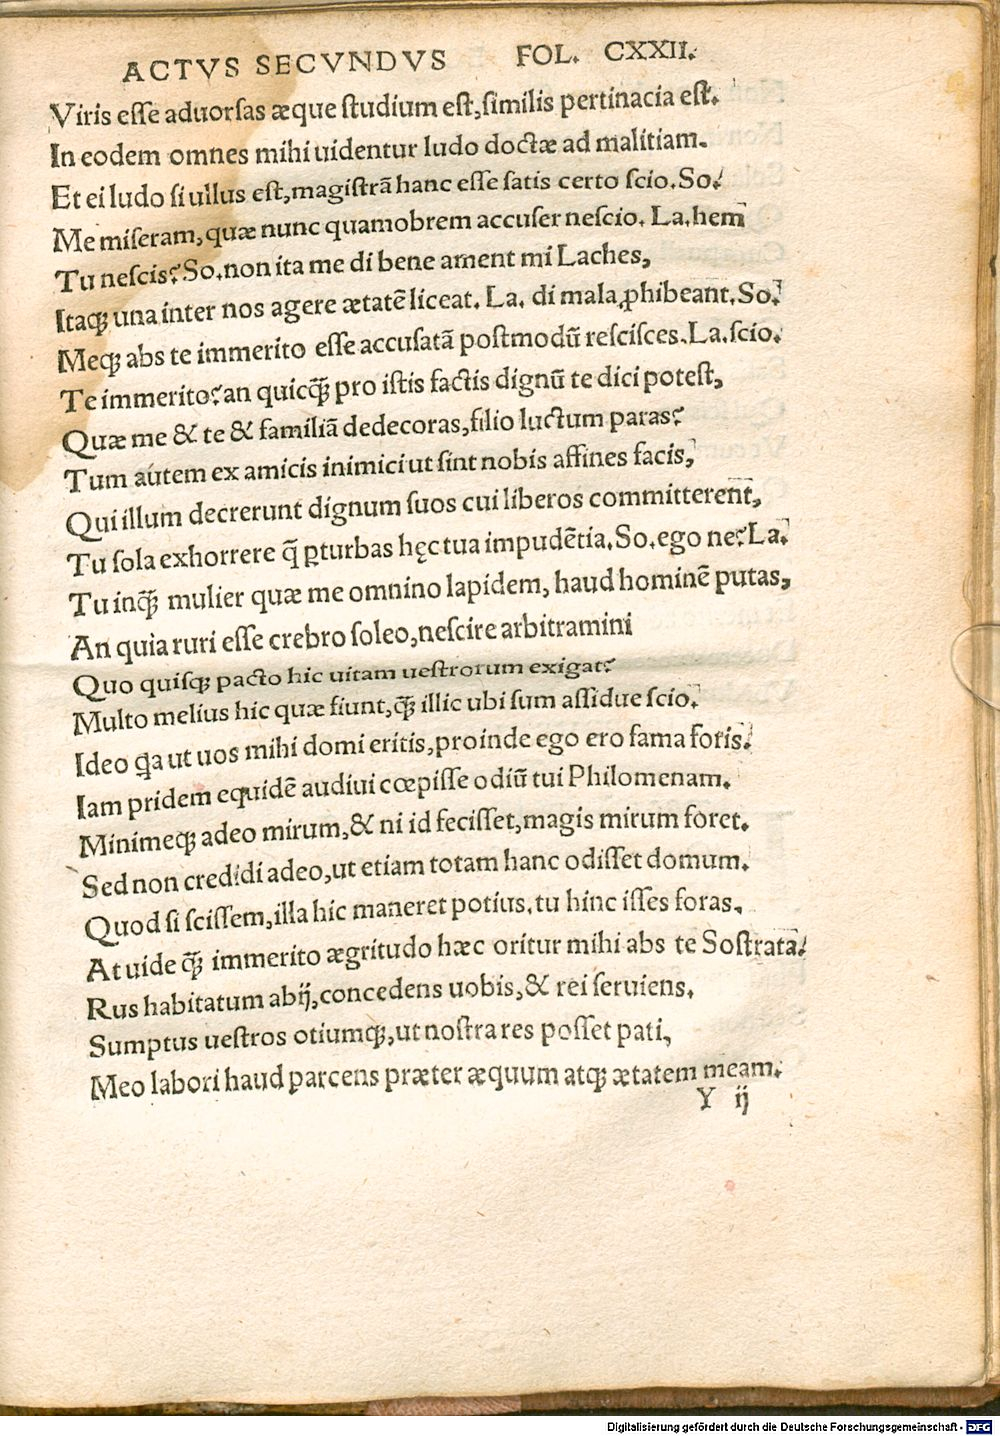 ACTVS SECVNDVS FOL. CXXII.
Viris esse aduorsas æque studium est, similis pertinacia est.
In eodem omnes mihi uidentur ludo doctæ ad malitiam.
Et ei ludo si ullus est, magistrā hanc esse satis certo scio. So.
Me miseram, quæ nunc quamobrem accuser nescio. La. hem
Tu nescis? So. non ita me di bene ament mi Laches,
Itaqꝫ una inter nos agere ætatē liceat. La. di mala ꝓhibeant. So.
Meqꝫ abs te immerito esse accusatā postmodū rescisces. La. scio.
Te immerito? an quicq̄ꝫ pro istis factis dignū te dici potest,
Quæ me & te & familiā dedecoras, filio luctum paras?
Tum autem ex amicis inimici ut sint nobis affines facis,
Qui illum decrerunt dignum suos cui liberos committerent,
Tu sola exhorrere q̄ ꝑturbas hęc tua impudētia. So. ego ne? La.
Tu inq̄ꝫ mulier quæ me omnino lapidem, haud hominē putas,
An quia ruri esse crebro soleo, nescire arbitramini
Quo quisqꝫ pacto hic uitam uestrorum exigat?
Multo melius hic quæ fiunt, q̄ꝫ illic ubi sum assidue scio.
Ideo qa ut uos mihi domi eritis, proinde ego ero fama foris.
Iam pridem equidē audiui cœpisse odiū tui Philomenam.
Minimeqꝫ adeo mirum, & ni id fecisset, magis mirum foret.
Sed non credidi adeo, ut etiam totam hanc odisset domum.
Quod si scissem, illa hic maneret potius, tu hinc isses foras,
At uide q̄ꝫ immerito ægritudo hæc oritur mihi abs te Sostrata.
Rus habitatum abij, concedens uobis, & rei seruiens.
Sumptus uestros otiumqꝫ, ut nostra res posset pati,
Meo labori haud ꝑarcens præter æquum atqꝫ ætatem meam.
Y ij
Digitalisierung gefördert durch die Deutsche Forschungsgemeinschaft - DFG